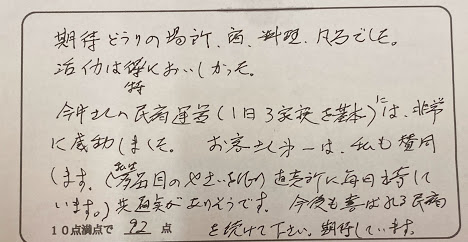 期待どうりの場所、宿、料理、月るでした。
活伊は特においしかった。
今井さんの民宿運営(1日3家族を基本)には、非常
に感動しました。お客さん第一は、私も賛同
します。(私は多品目のやさいを 直売所に毎日を
います。)共通点がありそうです。今後も喜ばれる民宿
10点満点で 92 点 を続けて下さい。期待しています。